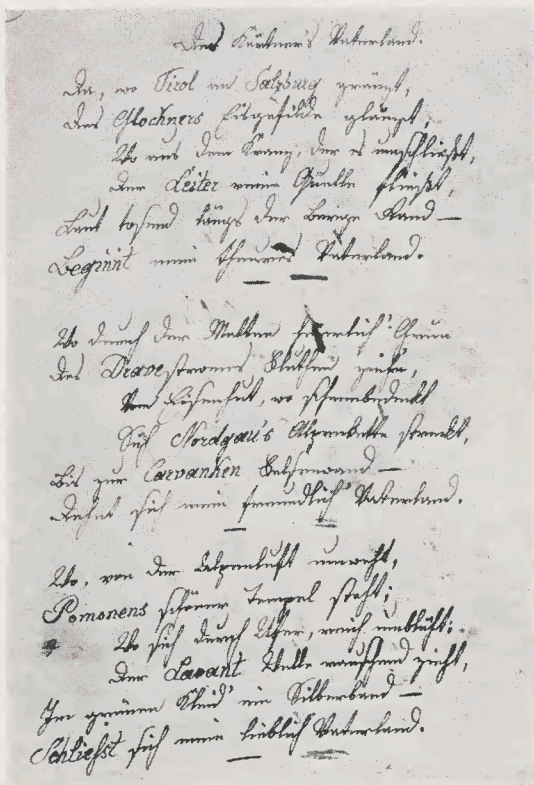 Des Kärtner's Vaterland.
Da, wo Tirol an Salzburg gränzt,
Des Glockners Eisgefilde glänzt,
Wo aus dem Kranz, der es umschließt,
Der Leiter reine Quelle fließt,
Laut tosend längs der Berge Rand —
Beginnt mein theures Vaterland.
Wo durch der Matten herrlich' Grün
Des Dravestromes Fluthen zieh'n,
Vom Eisenhut, wo schneebedeckt
Sich Nordgau's Alpenkette streckt,
Bis zur Carvanken Felsenwand —
Dehnt sich mein freundlich' Vaterland.
Wo, von der Alpenluft umweht,
Pomonens schöner Tempel steht;
Wo sich durch Ufer, reich umblüht;
Der Lavant Welle rauschend zieht,
Im grünen Kleid' ein Silberband —
Schließt sich mein lieblich Vaterland.